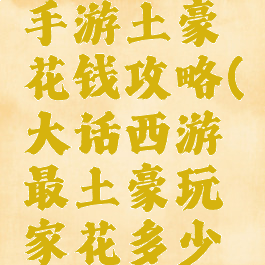 手游土豪
花钱攻略(
大话西游
最土豪玩
家花多少